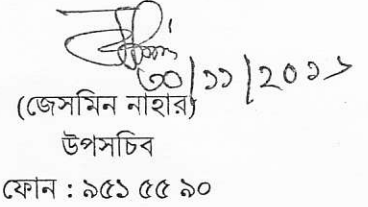 ৩০/১১/২০১১
(জেসমিন নাহার)
উপসচিব
ফোন : ৯৫১ ৫৫ ৯০